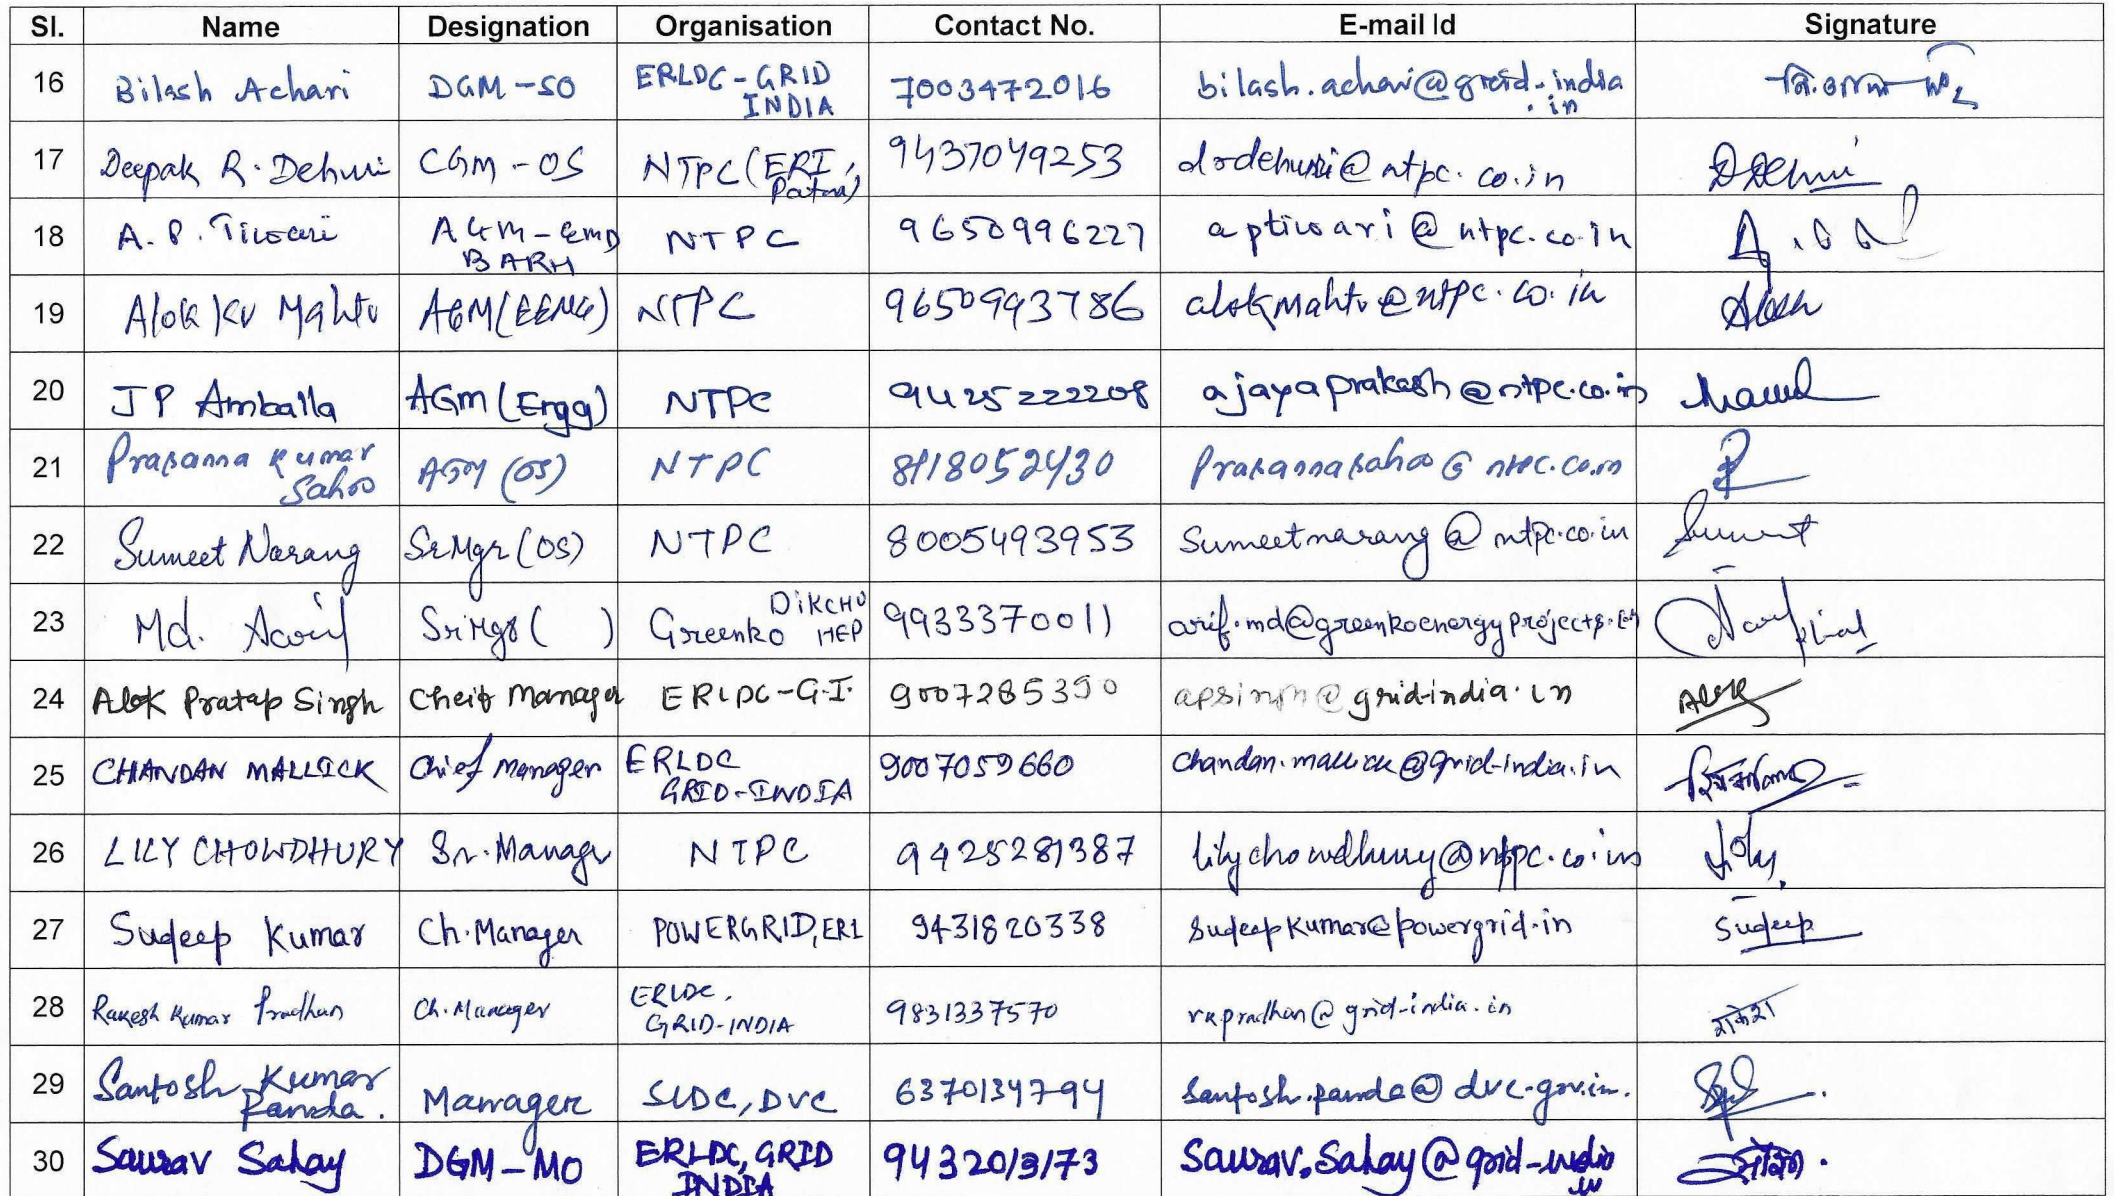 Sl. Name Designation Organisation Contact No. E-mail Id Signature
16 Bilash Achari DGM-SO ERLDC-GRID INDIA 7003472016 bilash.achari@grid-india.in
17 Deepak R. Dehuri CGM-OS NTPC (ERI, Patna) 9437049253 drdehuri@ntpc.co.in
18 A.P. Tiwari AGM-EMD BARH NTPC 9650996227 aptiwari@ntpc.co.in
19 Alok Kr Mahto AGM(EEMG) NTPC 9650993786 alokmahto@ntpc.co.in
20 JP Amballa AGM (Engg) NTPC 9425222208 ajayaprakash@ntpc.co.in
21 Prasanna Kumar Sahoo AGM (OS) NTPC 8118052430 Prasannasahoo@ntpc.co.in
22 Sumeet Narang Sr Mgr (OS) NTPC 8005493953 Sumeetnarang@ntpc.co.in Sumeet
23 Md. Arif Sr Mgr ( ) Greenko DIKCHU HEP 9933370011 arif.md@greenkoenergyprojects.
24 Alok Pratap Singh Cheif Manager ERLDC-G.I. 9007285390 apsingh@grid-india.in Alok
25 CHANDAN MALLICK Chief Manager ERLDC GRID-INDIA 9007059660 Chandan.mallick@grid-india.in
26 LILY CHOWDHURY Sr. Manager NTPC 9425281387 lilychowdhury@ntpc.co.in
27 Sudeep Kumar Ch. Manager POWERGRID, ER1 9431820338 sudeepkumar@powergrid.in Sudeep
28 Rakesh Kumar Pradhan Ch. Manager ERLDC, GRID-INDIA 9831337570 rkpradhan@grid-india.in राकेश
29 Santosh Kumar Panda. Manager SLDC, DVC 6370134794 santosh.panda@dvc.gov.in.
30 Saurav Sahay DGM-MO ERLDC, GRID INDIA 9432013173 Saurav.Sahay@grid-india.in